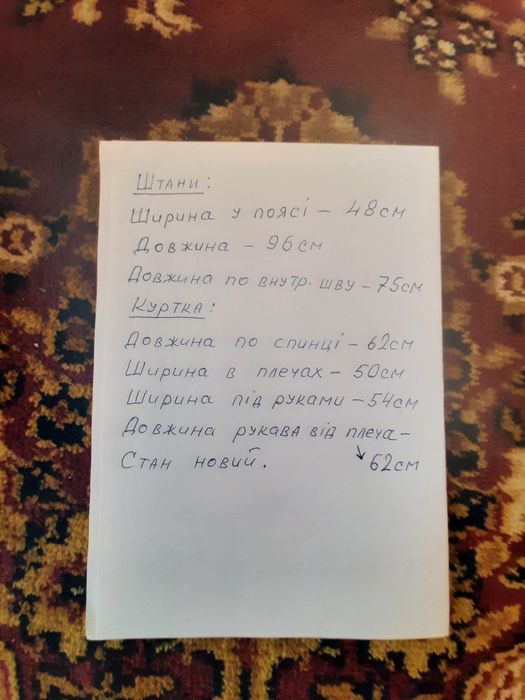 Штани:
Ширина у поясі - 48см
Довжина - 96см
Довжина по внутр. шву - 75см
Куртка:
Довжина по спинці - 62см
Ширина в плечах - 50см
Ширина під руками - 54см
Довжина рукава від плеча -
Стан новий. ↘ 62см